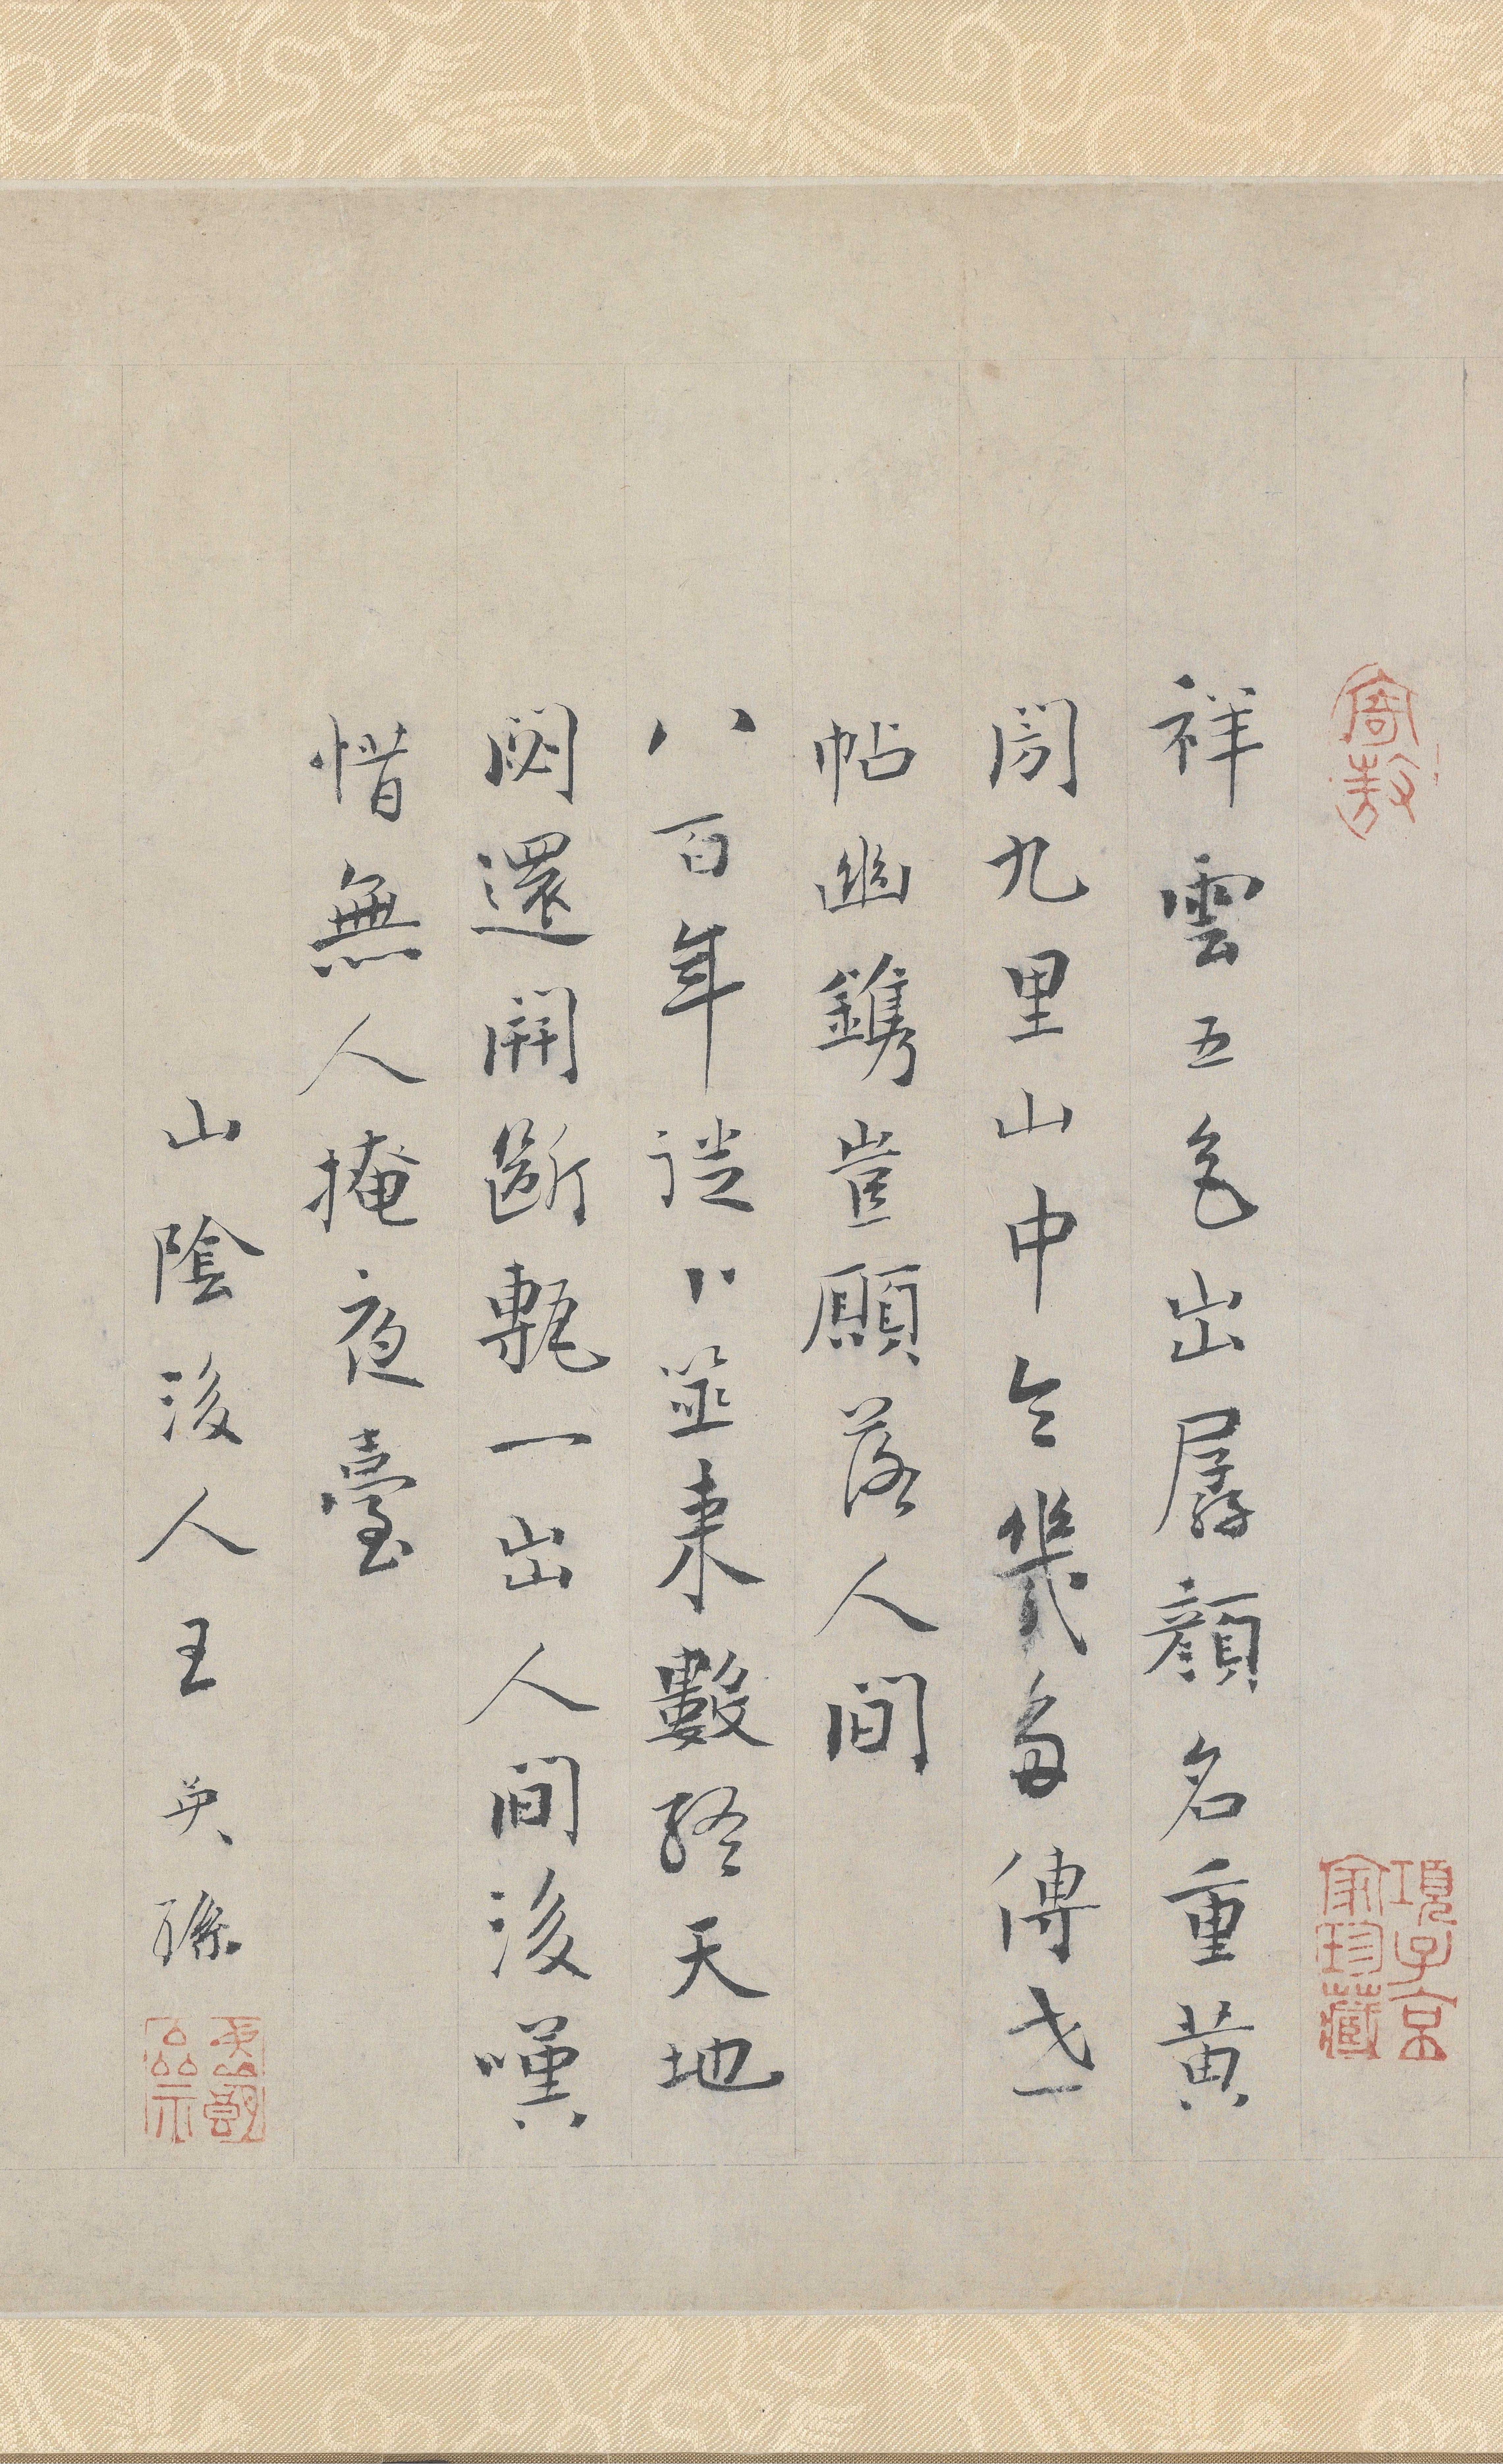 寄敖
項子京
家珍藏
祥雲五色出孱顏名重黃
閍九里山中令幾多傳世
帖幽鐫豈願落人間
八百年從卜筮來數終天地
閟還開斷甎一出人間後嘆
惜無人掩夜臺
山陰後人王英孫